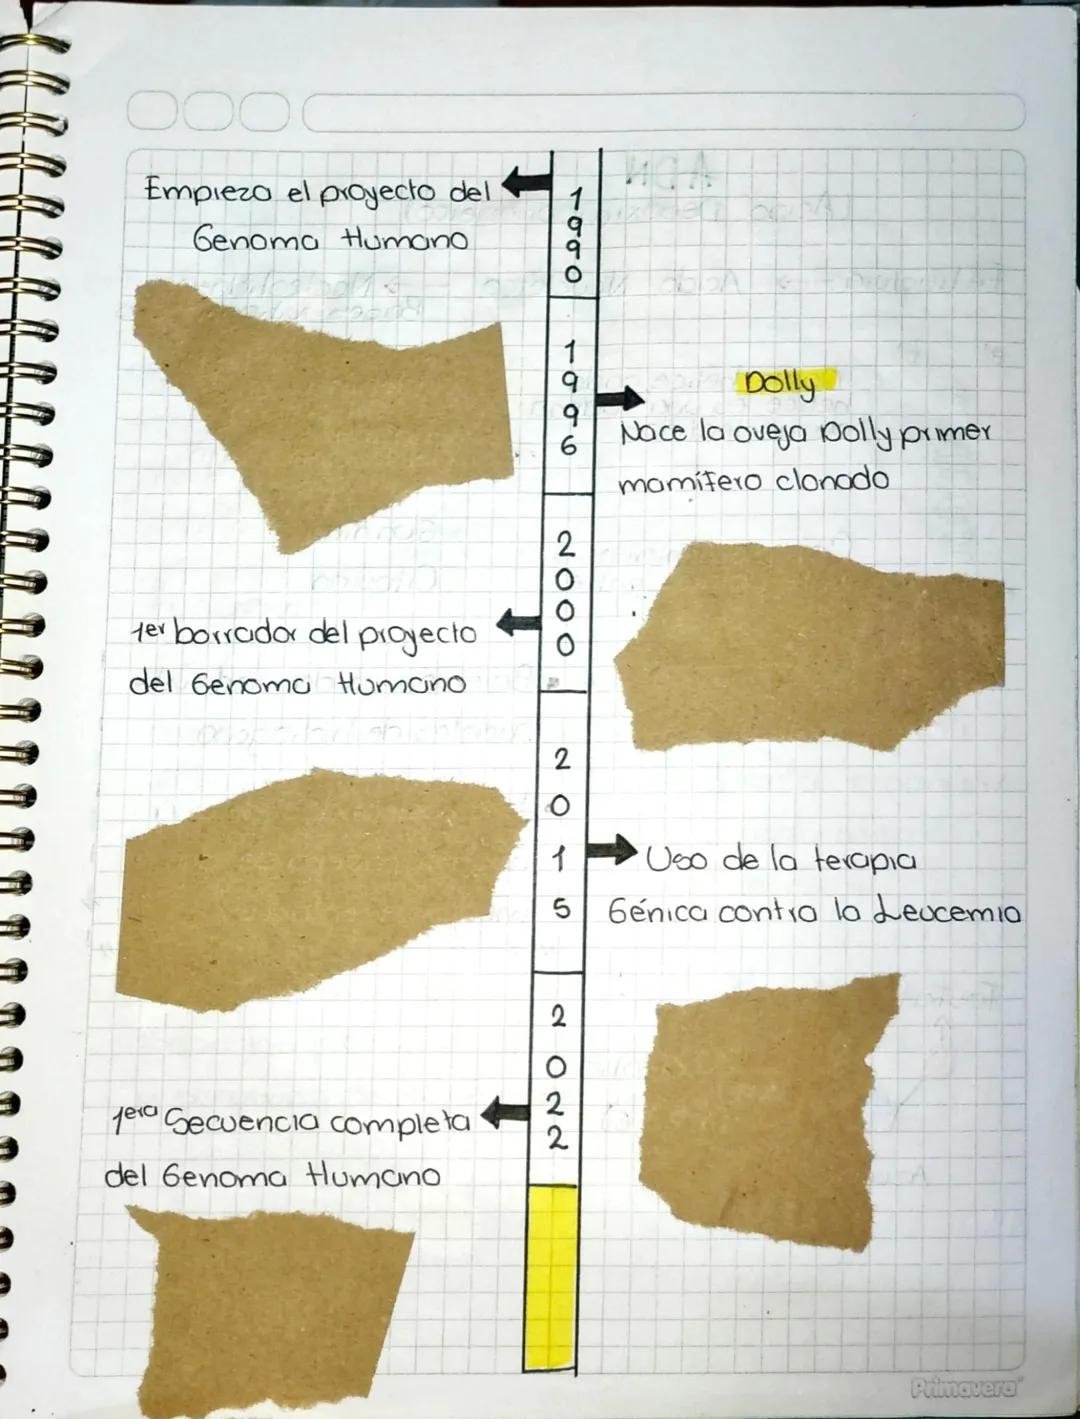 Empieza el proyecto del
Genoma Humano
1990
1996
Dolly
Nace la oveja Dolly primer
mamífero clonado
2000
1er borrador del proyecto
del Genoma Humano
2015
Uso de la terapia
Génica contra la Leucemia
2022
1era Secuencia completa
del Genoma Humano
Primavera